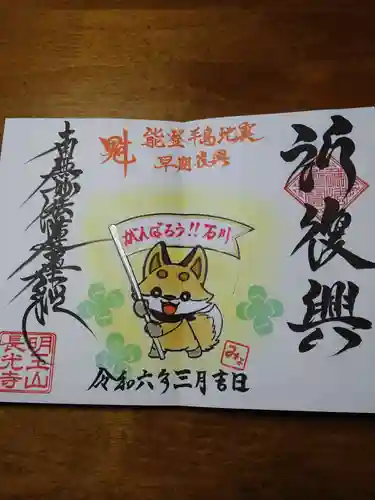 祈復興
魁
能登半島地震
早期復興
がんばろう!!石川
みな
令和六年三月吉日
南無妙法蓮華経
明玉山
長光寺